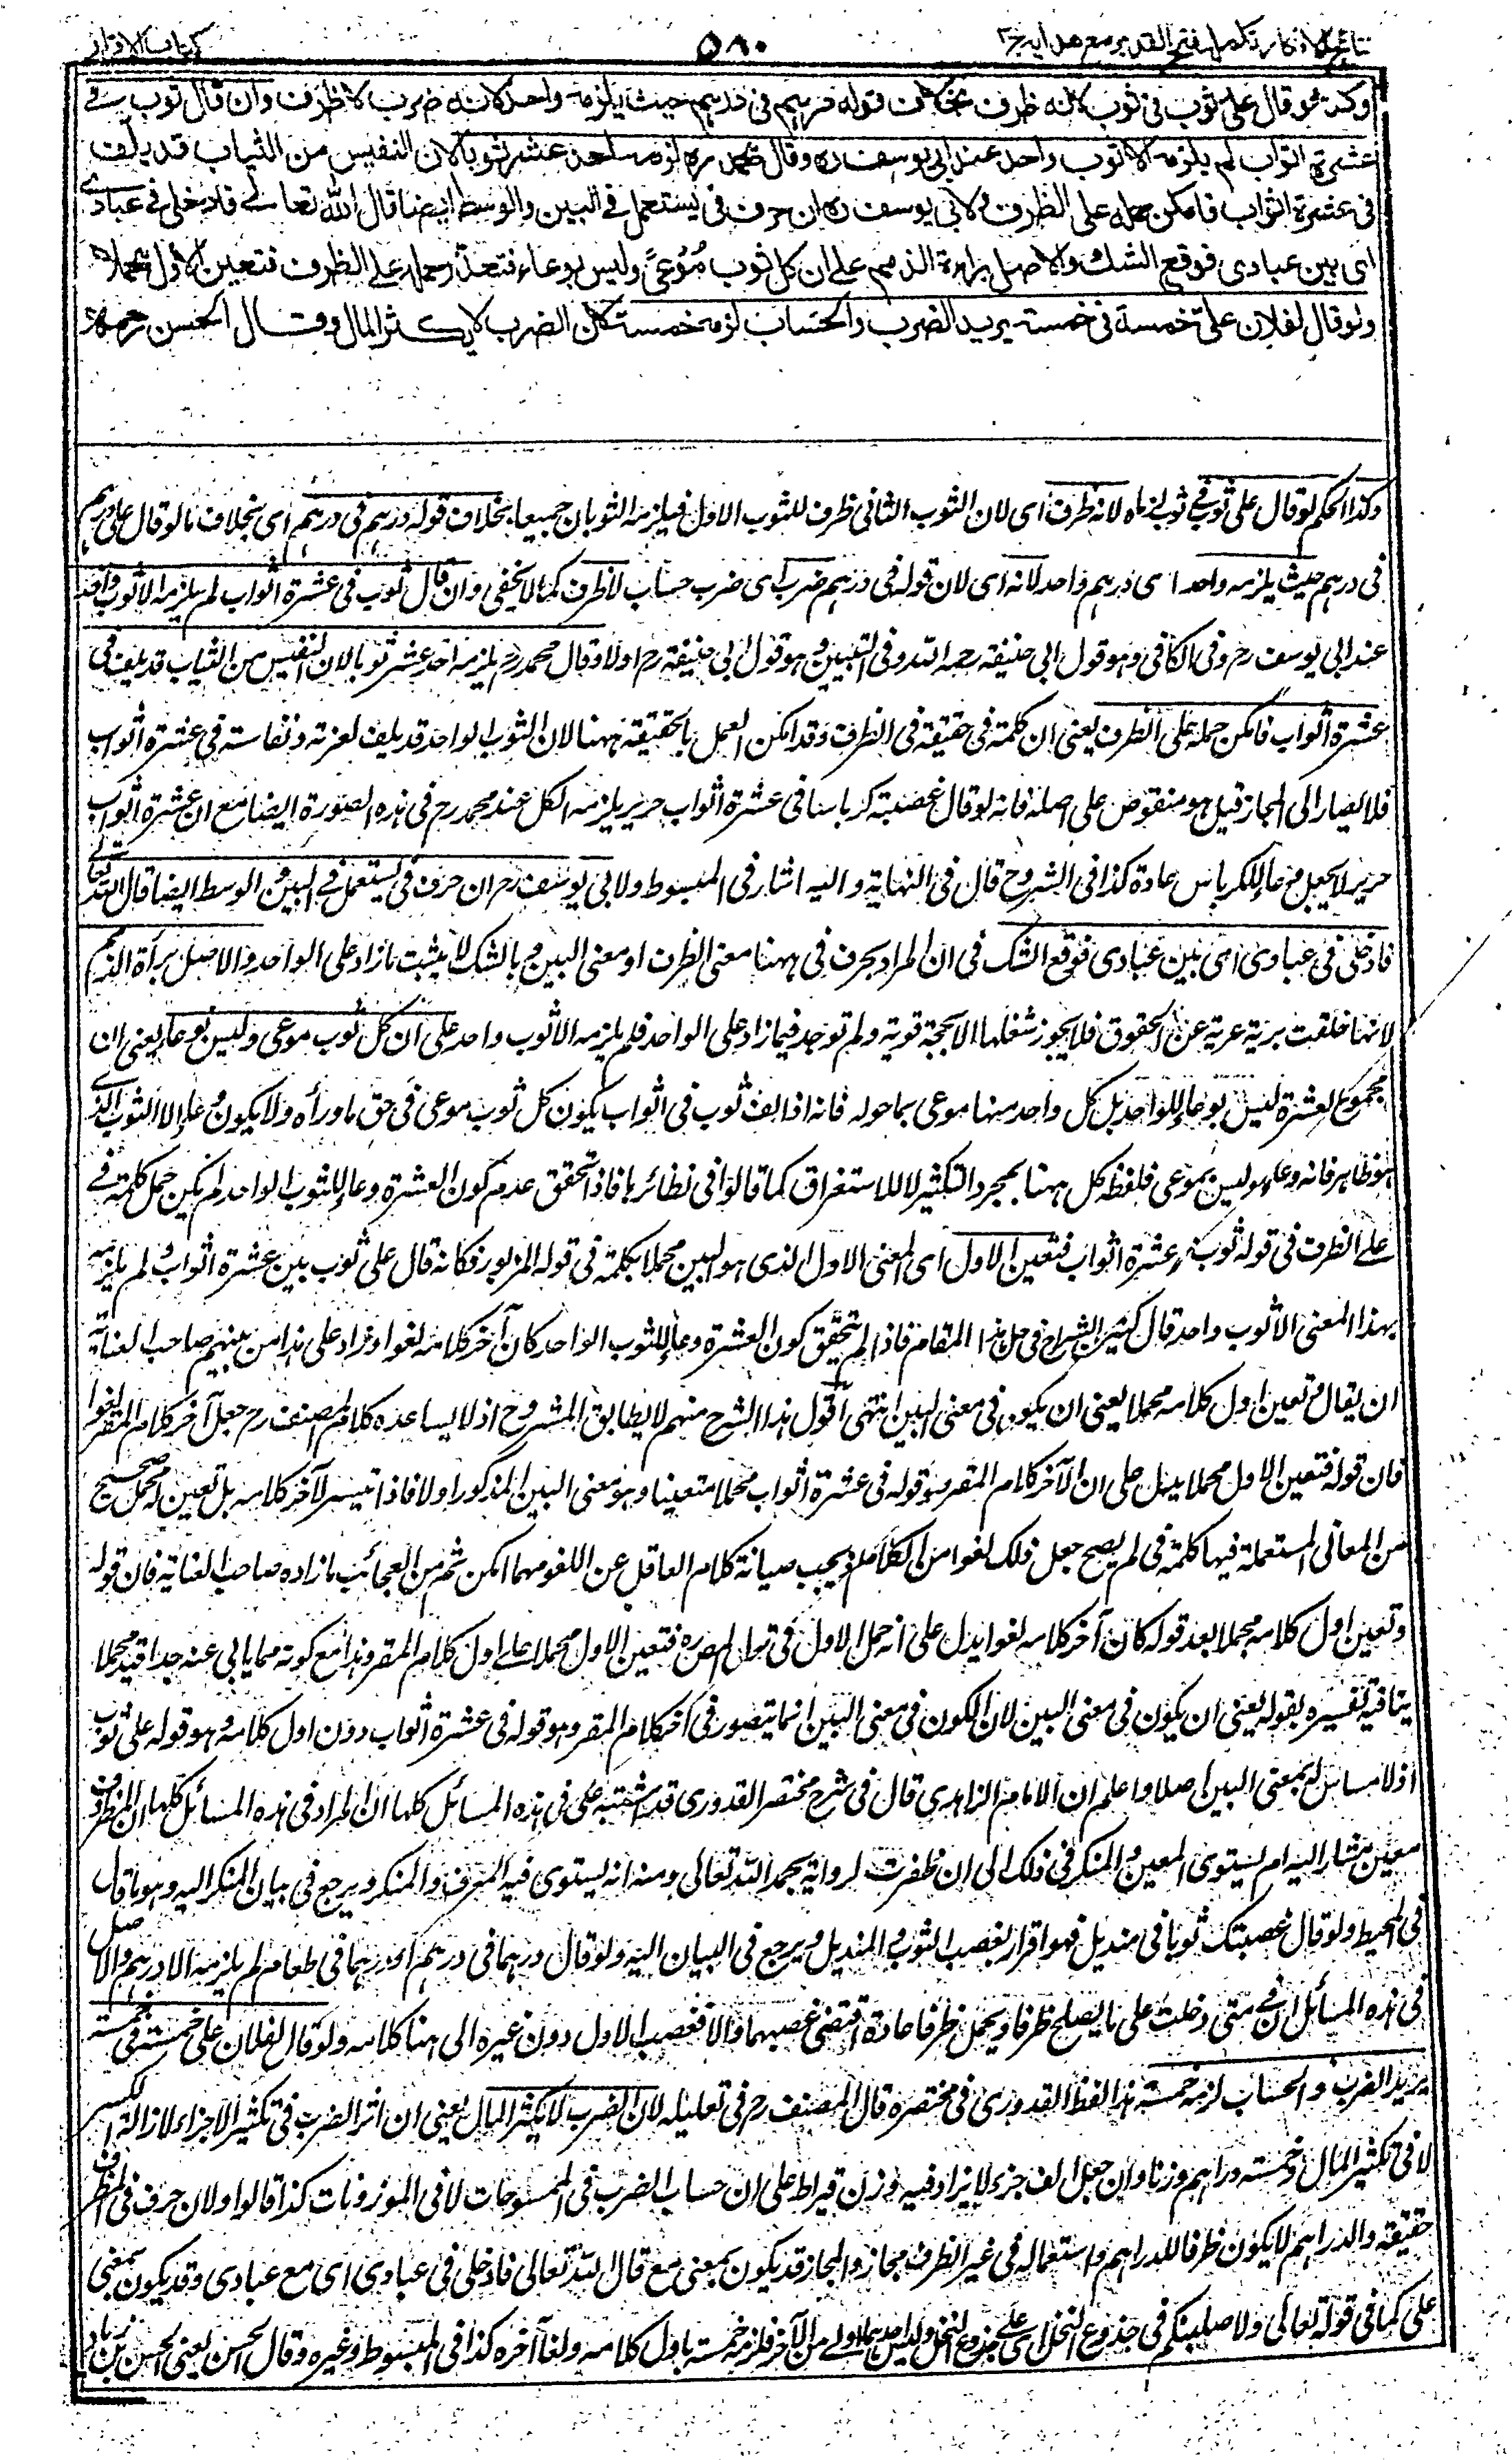 نتائج الافكار تكملہ فتح القدير مع هدايہ ج ٣
٥٨٠
كتاب الاقرار
وكذا لو قال على ثوب في ثوب لانه ظرف بخلاف قوله درهم في درهم حيث يلزمه واحد لانه ضرب لا ظرف وان قال ثوب في
عشرة اثواب لم يلزمه الا ثوب واحد عند ابي يوسف ره وقال محمد ره لزمه احد عشر ثوبا لان النفيس من الثياب قد يلف
في عشرة اثواب فامكن حمله على الظرف ولابي يوسف ره ان حرف في يستعمل في البين والوسط ايضا قال الله تعالى فادخلي في عبادي
اي بين عبادي فوقع الشك والاصل براءة الذمم على ان كل ثوب مُوْعىً وليس بوعاء فتعذر حمله على الظرف فتعين الاول محملا
ولو قال لفلان علي خمسة في خمسة يريد الضرب والحساب لزمه خمسة لان الضرب لا يكثر المال وقال الحسن رحمه الله
وكذا الحكم لو قال على ثوب في ثوب لزماه لانه ظرف اى لان الثوب الثاني ظرف للثوب الاول فيلزمه الثوبان جميعا بخلاف قوله درهم في درهم اى بخلاف ما لو قال على درهم
في درهم حيث يلزمه واحد اى درهم واحد لانه اى لان قوله في درهم ضرب اى ضرب حساب لا ظرف كما لا يخفى وان قال ثوب في عشرة اثواب لم يلزمه الا ثوب واحد
عند ابي يوسف رح وفي الكافي وهو قول ابي حنيفة رحمه الله وفي التبيين وهو قول ابي حنيفة رح اولا وقال محمد رح يلزمه احد عشر ثوبا لان النفيس من الثياب قد يلف في
عشرة اثواب فامكن حمله على الظرف يعني ان كلمة في حقيقة في الظرف وقد امكن العمل بالحقيقة ههنا لان الثوب الواحد قد يلف لعزته ونفاسته في عشرة اثواب
فلا يصار الى المجاز قيل هو منقوض على اصله فانه لو قال غصبته كرباسا في عشرة اثواب حرير يلزمه الكل عند محمد رح في هذه الصورة ايضا مع ان عشرة اثواب
حرير لا يجعل وعاء للكرباس عادة كذا في الشروح قال في النهاية واليه اشار في المبسوط ولابي يوسف رح ان حرف في يستعمل في البين والوسط ايضا قال الله تعالى
فادخلي في عبادي اى بين عبادي فوقع الشك في ان المراد بحرف في ههنا معنى الظرف او معنى البين وبالشك لا يثبت ما زاد على الواحد والاصل براءة الذمم
لانها خلقت برية عرية عن الحقوق فلا يجوز شغلها الا بحجة قوية ولم توجد فيما زاد على الواحد فلم يلزمه الا ثوب واحد على ان كل ثوب موعى وليس بوعاء يعني ان
مجموع العشرة ليس بوعاء للواحد بل كل واحد منها موعى بما حوله فانه اذا لف ثوب في اثواب يكون كل ثوب موعى في حق ما وراءه ولا يكون وعاء الا الثوب الذي
هو ظاهر فانه وعاء وليس بموعى فلفظه كل ههنا بمجرد التكثير لا للاستغراق كما قالوا في نظائرها فاذا تحقق عدم كون العشرة وعاء للثوب الواحد لم يكن حمل كلمة في
على الظرف في قوله ثوب في عشرة اثواب فتعين الاول اى المعنى الاول الذي هو البين محملا لكلمة في قوله المزبور فكانه قال على ثوب بين عشرة اثواب ولم يلزمه
بهذا المعنى الا ثوب واحد قال كثير من الشراح في حل هذا المقام فاذا لم يتحقق كون العشرة وعاء للثوب الواحد كان آخر كلامه لغوا وزاد على هذا من بينهم صاحب العناية
ان يقال وتعين اول كلامه محملا يعني ان يكون في معنى البين انتهى اقول هذا الشرح منهم لا يطابق المشروح اذ لا يساعده كلام المصنف رح جعل آخر كلام المقر لغوا
فان قوله فتعين الاول محملا يدل على ان لآخر كلام المقر وهو قوله في عشرة اثواب محملا متعينا وهو معنى البين المذكور اولا فاذا تيسر لآخر كلامه بل تعين له محمل صحيح
من المعاني المستعملة فيها كلمة في لم يصح جعل ذلك لغوا من الكلام اذ يجب صيانة كلام العاقل عن اللغو مهما امكن ثم من العجائب ما زاده صاحب العناية فان قوله
وتعين اول كلامه محملا بعد قوله كان آخر كلامه لغوا يدل على انه حمل الاول في قول المص ره فتعين الاول محملا على اول كلام المقر وهذا مع كونه مما يابى عنه جدا قيد محملا
ينافيه تفسيره بقوله يعني ان يكون في معنى البين لان الكون في معنى البين انما يتصور في آخر كلام المقر وهو قوله في عشرة اثواب دون اول كلامه وهو قوله على ثوب
اذ لا مساس له بمعنى البين اصلا واعلم ان الامام الزاهدي قال في شرح مختصر القدوري قد اشتبه على في هذه المسائل كلها ان المراد في هذه المسائل كلها ان المظروف
معين مشار اليه ام يستوي المعين والمنكر في ذلك الى ان ظفرت لرواية بحمد الله تعالى ومنه انه يستوي فيه المعرف والمنكر ويرجع في بيان المنكر اليه وهو ما قال
في المحيط ولو قال غصبتك ثوبا في منديل فهو اقرار بغصب الثوب والمنديل ويرجع في البيان اليه ولو قال درهما في درهم او درهما في طعام لم يلزمه الا درهم والاصل
في هذه المسائل ان في متى دخلت على ما يصلح ظرفا ويجعل ظرفا عادة اقتضى غصبهما والا فغصب الاول دون غيره الى هنا كلامه ولو قال لفلان على خمسة في خمسة
يريد الضرب والحساب لزمه خمسة هذا لفظ القدوري في مختصره قال المصنف رح في تعليله لان الضرب لا يكثر المال يعني ان اثر الضرب في تكثير الاجزاء لازالة الكسر
لا في تكثير المال وخمسة دراهم وزنا وان جعل الف جزء لا يزاد فيه وزن قيراط على ان حساب الضرب في الممسوحات لا في الموزونات كذا قالوا ولان حرف في للظرف
حقيقة والدراهم لا يكون ظرفا للدراهم واستعماله في غير الظرف مجاز والمجاز قد يكون بمعنى مع قال الله تعالى فادخلي في عبادي اى مع عبادي وقد يكون بمعنى
على كما في قوله تعالى ولاصلبنكم في جذوع النخل اى على جذوع النخل وليس احدهما اولى من الآخر فلزمه خمسة باول كلامه ولغا آخره كذا في المبسوط وغيره وقال الحسن يعني الحسن بن زياد